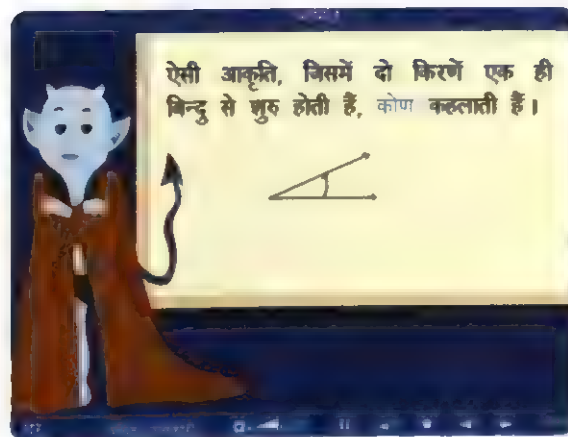 ऐसी आकृति, जिसमें दो किरणें एक ही
बिन्दु से शुरु होती हैं, कोण कहलाती हैं।